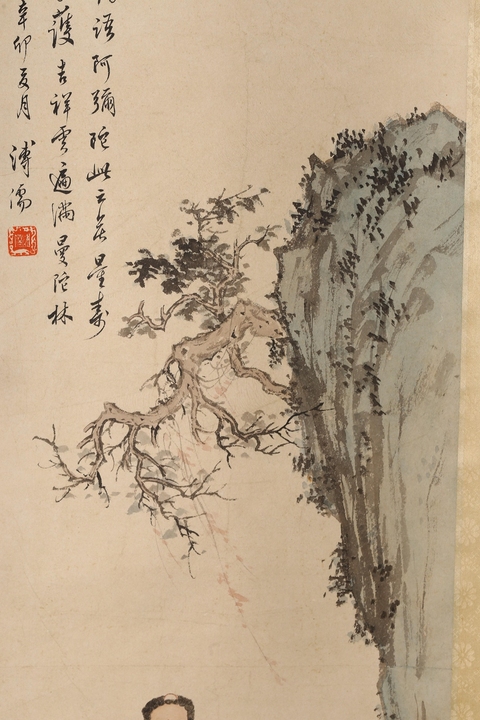 語阿彌陀此云無量壽
護吉祥雲遍滿曼陀林
辛卯夏月
溥儒